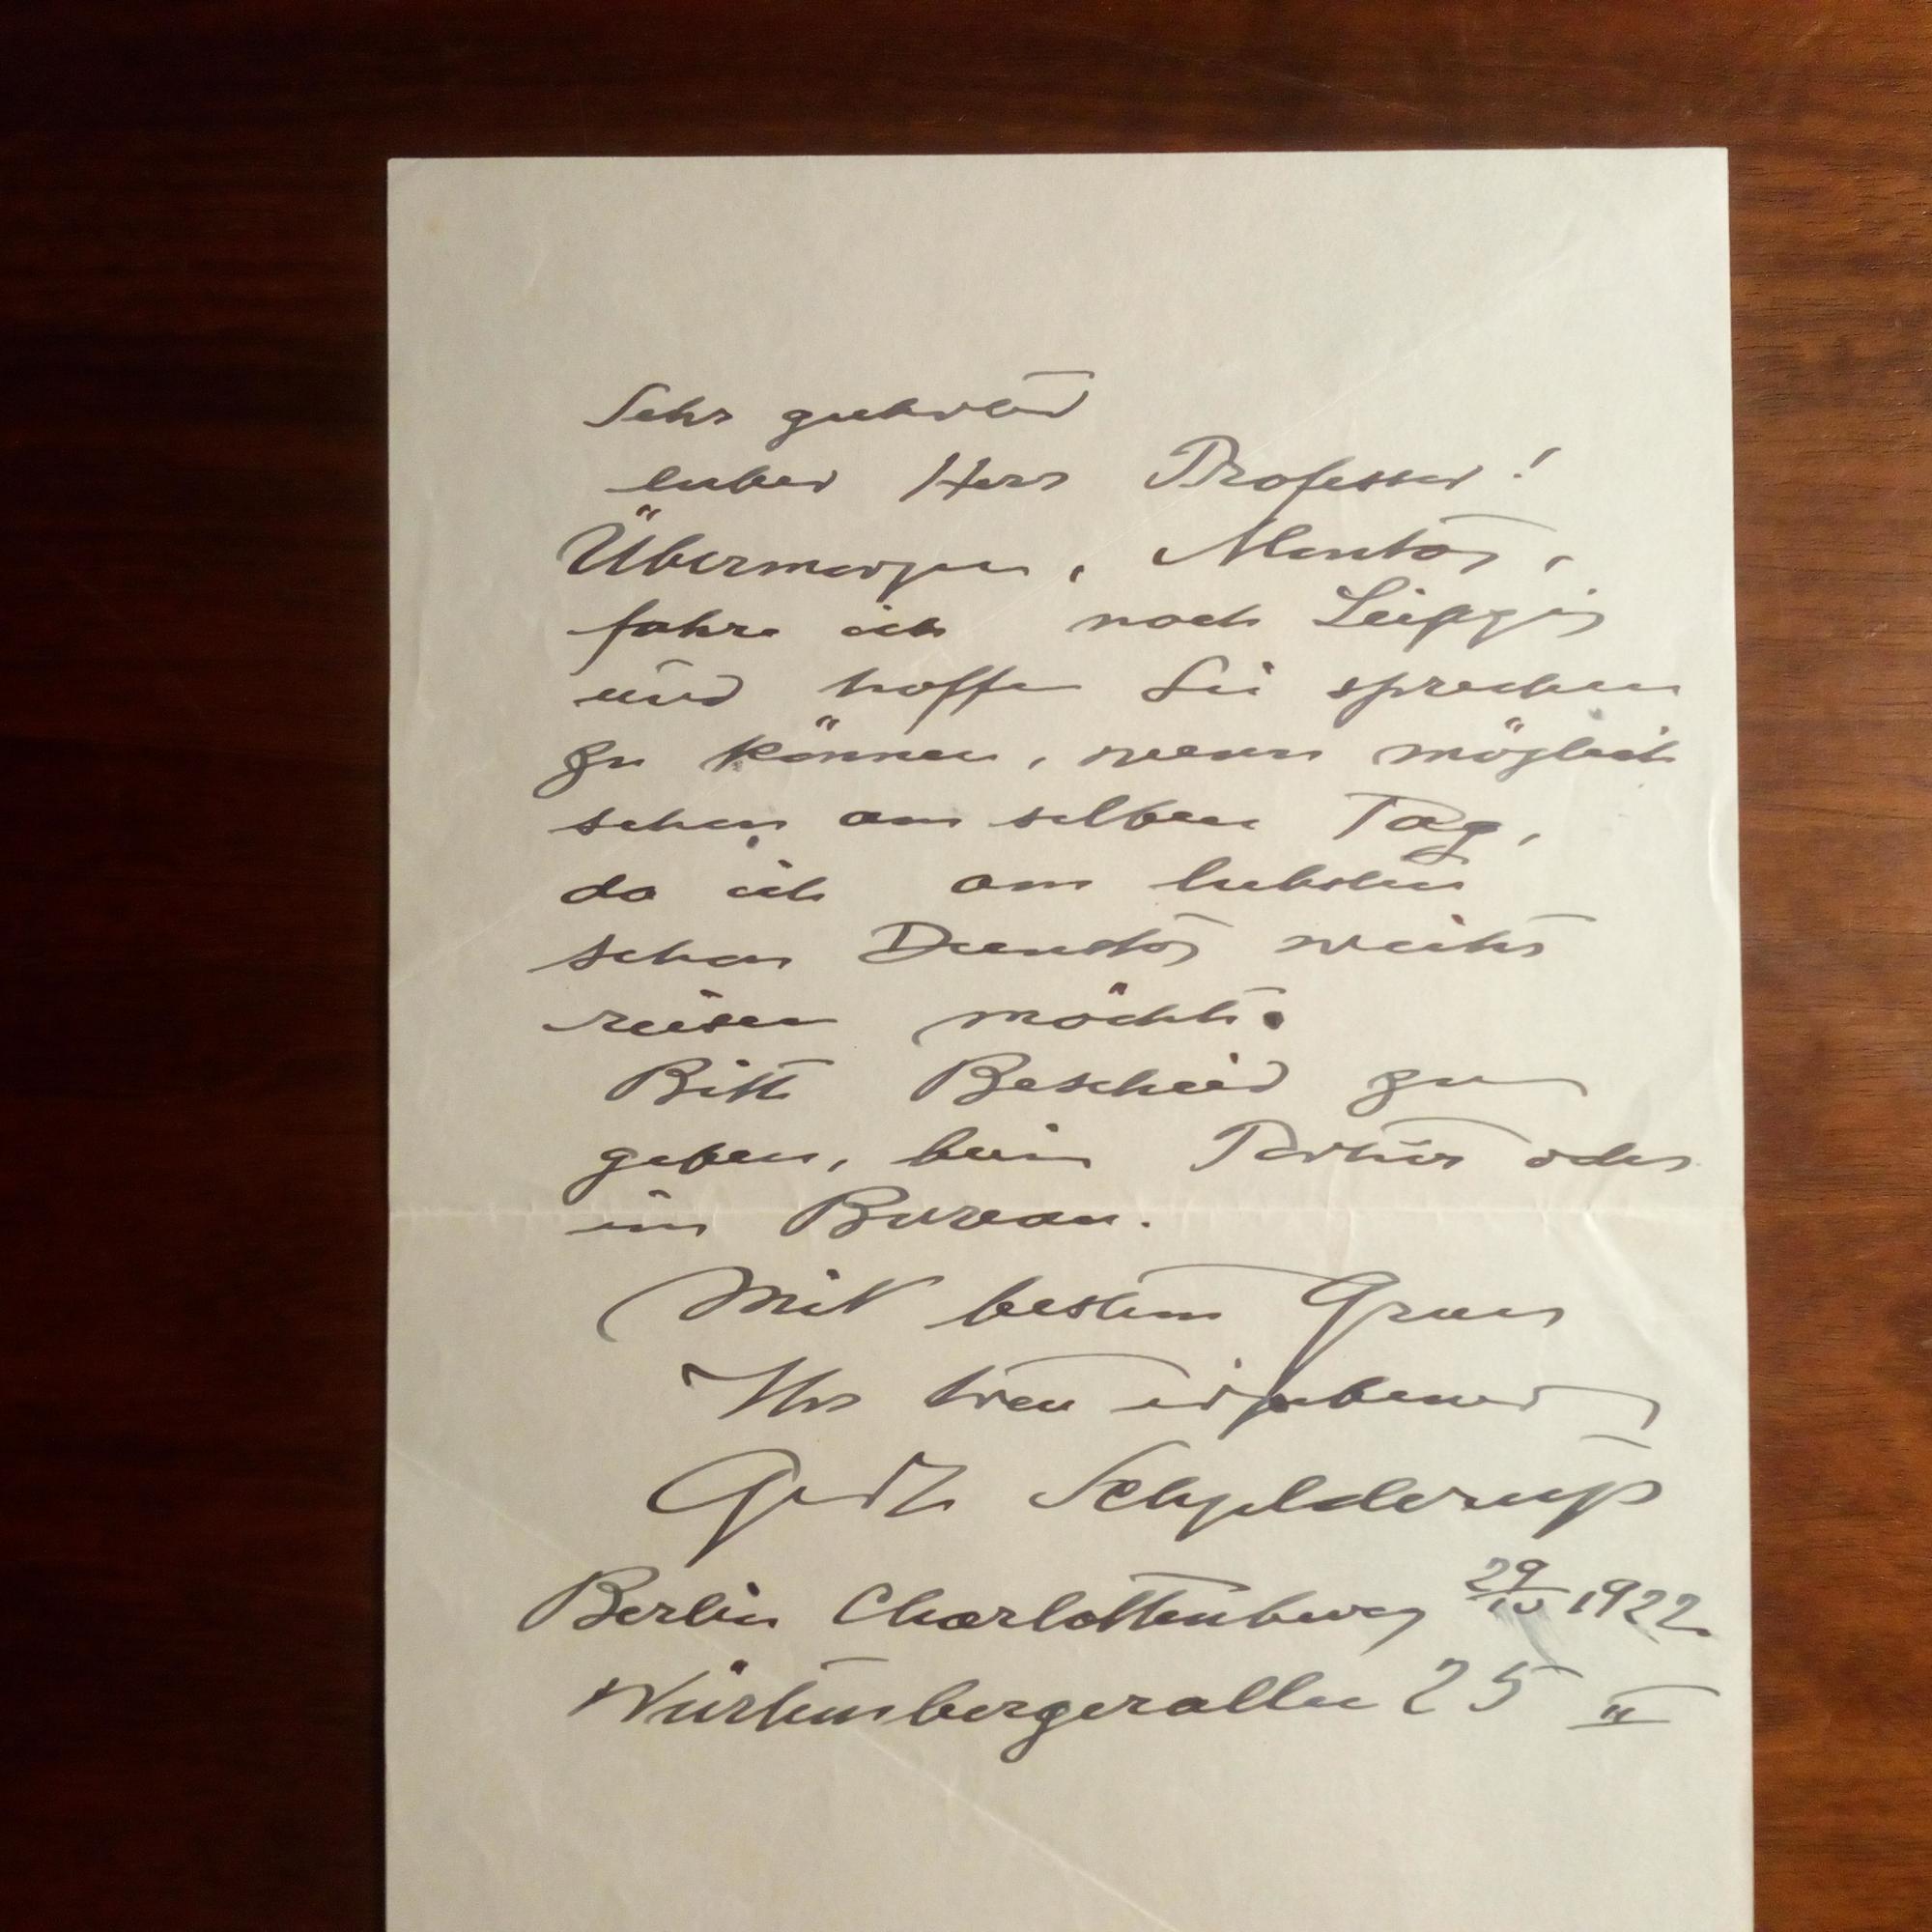 Sehr geehrter
lieber Herr Professor!
Übermorgen, Montag,
fahre ich nach Leipzig
und hoffe Sie sprechen
zu können, wenn möglich
schon am selben Tag,
da ich am liebsten
schon Dienstag weiter
reisen möchte.
Bitte Bescheid zu
geben, beim Portier oder
im Bureau.
Mit bestem Gruss
Ihr treu ergebener
Gerh Schjelderup
Berlin Charlottenburg 29/10 1922.
Würtembergerallee 25 II